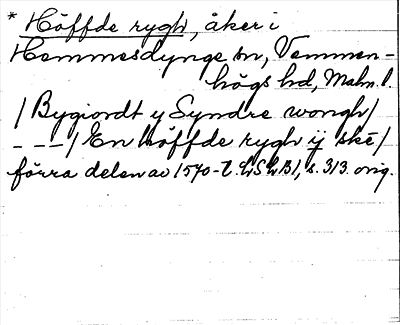 * Höffde rygh, åker i
Hemmesdynge sn, Vemmen-
högs hd, Malm. l.
/Bygiordt y Syndre wongh/
- - -/ En höffde rygh ij skē/
förra delen av 1570-t. (LSLB), s. 313. orig.